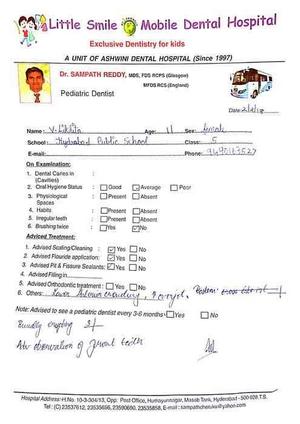 Little Smile Mobile Dental Hospital
Exclusive Dentistry for kids
A UNIT OF ASHWINI DENTAL HOSPITAL (Since 1997)
Dr. SAMPATH REDDY, MDS, FDS RCPS (Glasgow)
MFDS RCS (England)
Pediatric Dentist
Date:
Name: V. Likhita Age: 11 Sex: female
School: Hyderabad Public School Class: 5
E-mail: Phone:
On Examination:
1. Dental Caries in :
(Cavities)
2. Oral Hygiene Status : Good Average Poor
3. Physiological : Present Absent
Spaces
4. Habits : Present Absent
5. Irregular teeth : Present Absent
6. Brushing twice : Yes No
Advised Treatment:
1. Advised Scaling/Cleaning : Yes No
2. Advised Flouride application: Yes No
3. Advised Pit & Fissure Sealants: Yes No
4. Advised Filling in
5. Advised Orthodontic treatment : Yes No
6. Others: Lower
Note: Advised to see a pediatric dentist every 3-6 months: Yes No
observation of teeth
Hospital Address: H.No. 10-3-304/13, Opp. Post Office, Humayunnagar, Masab Tank, Hyderabad - 500 028 T.S.
Tel : (C) 23537612, 23535656, 23590680, 23535858, E-mail : sampathcheruku@yahoo.com